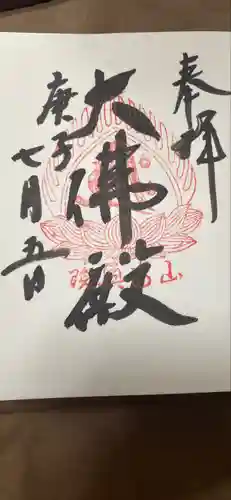 奉拝
大佛殿
庚子
七月五日